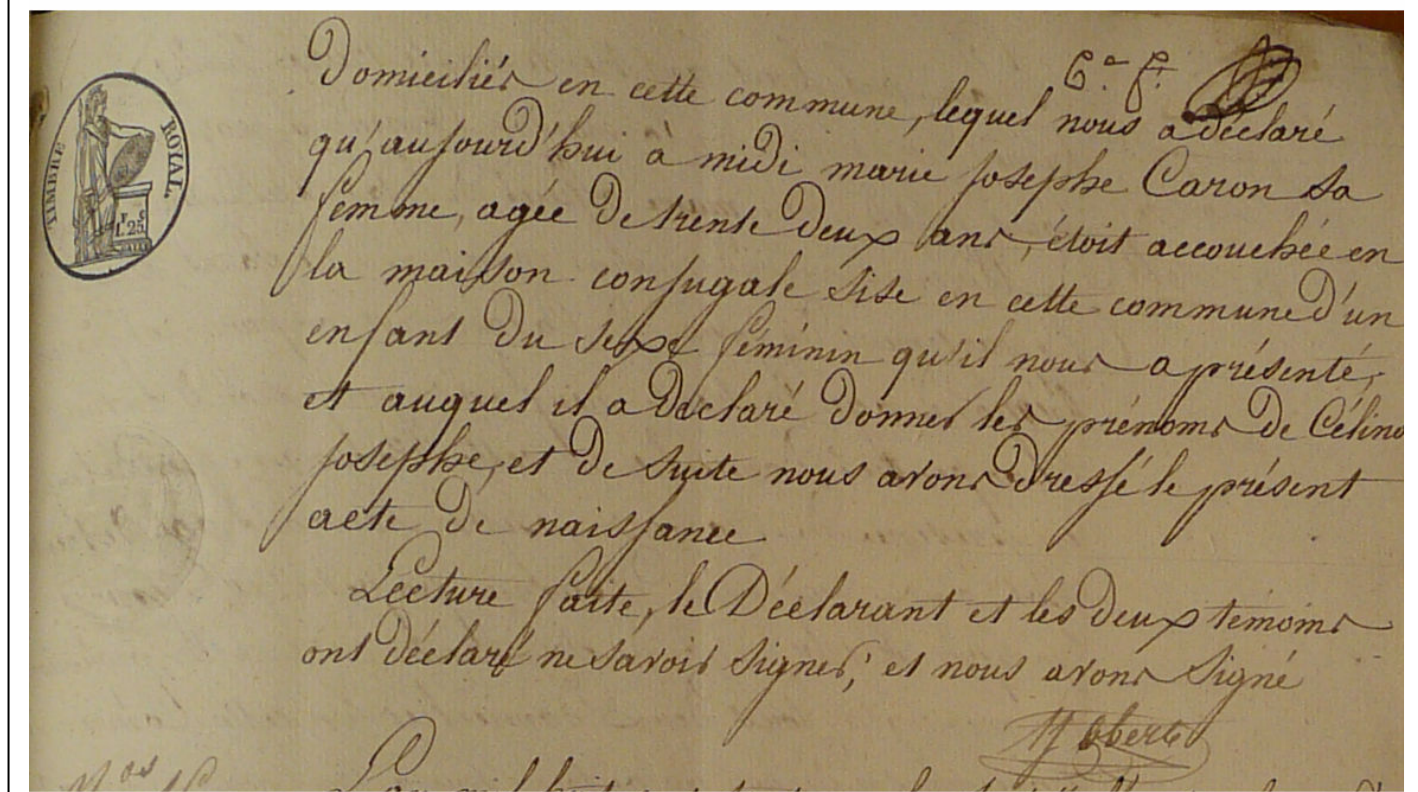 6.e f.
TIMBRE ROYAL
1.F 25.C
Domiciliés en cette commune, lequel nous a déclaré
qu'aujourd'hui à midi marie josephe Caron sa
femme, agée de trente deux ans, étoit accouchée en
la maison conjugale sise en cette commune d'un
enfant du sexe féminin qu'il nous a présenté,
et auquel il a declaré donner les prénoms de Célina
josephe, et de suite nous avons dressé le présent
acte de naissance
Lecture faite, le Déclarant et les deux témoins
ont déclaré ne savoir signer; et nous avons signé